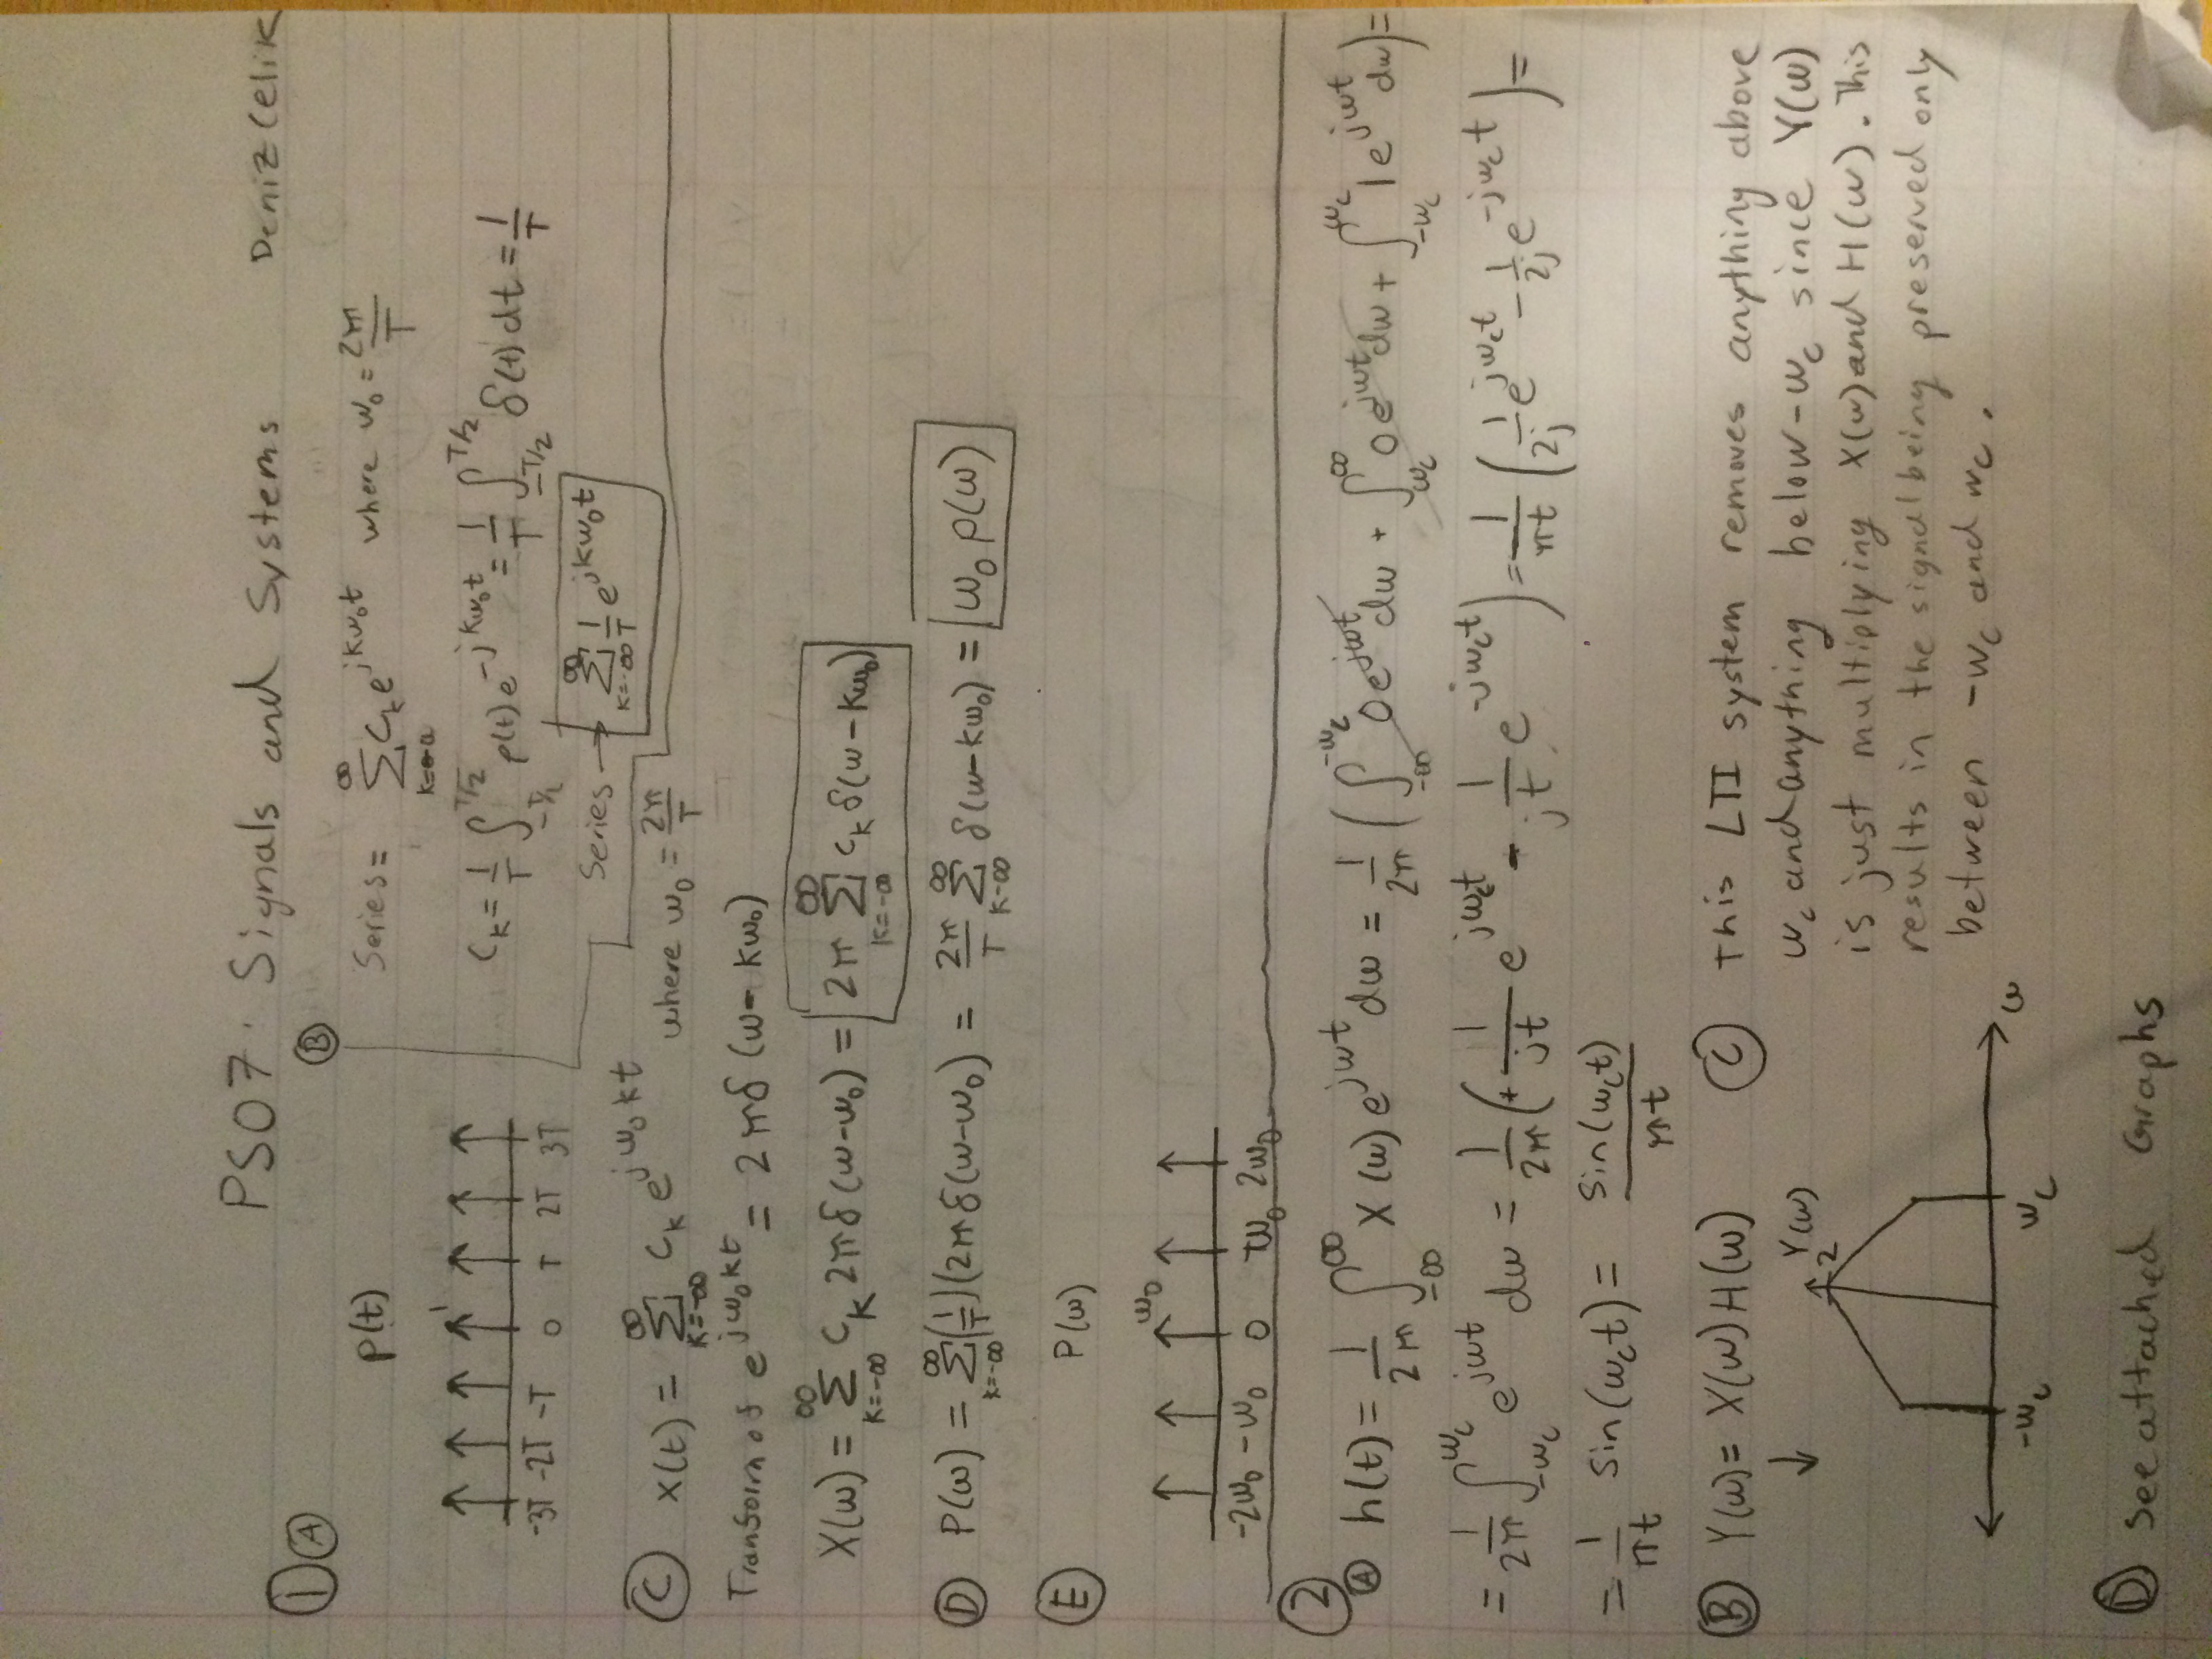 PS07. Signals and Systems Deniz Celik
① Ⓐ
p(t)
1
-3T -2T -T 0 T 2T 3T
Ⓑ
Series = ∑_{k=-∞}^{∞} C_k e^{jkω₀t} where ω₀ = 2π/T
C_k = 1/T ∫_{-T/2}^{T/2} p(t) e^{-jkω₀t} = 1/T ∫_{-T/2}^{T/2} δ(t) dt = 1/T
Series → ∑_{k=-∞}^{∞} 1/T e^{jkω₀t}
Ⓒ x(t) = ∑_{k=-∞}^{∞} C_k e^{jω₀kt} where ω₀ = 2π/T
Transform of e^{jω₀kt} = 2πδ(ω-kω₀)
X(ω) = ∑_{k=-∞}^{∞} C_k 2πδ(ω-ω₀) = 2π ∑_{k=-∞}^{∞} C_k δ(ω-kω₀)
Ⓓ P(ω) = ∑_{k=-∞}^{∞} (1/T)(2πδ(ω-ω₀) = 2π/T ∑_{k-∞}^{∞} δ(ω-kω₀) = ω₀ p(ω)
Ⓔ P(ω)
ω₀
-2ω₀ -ω₀ 0 ω₀ 2ω₀
②
Ⓐ h(t) = 1/2π ∫_{-∞}^{∞} X(ω) e^{jωt} dω = 1/2π (∫_{-∞}^{-ω_c} 0e^{jωt} dω + ∫_{ω_c}^{∞} 0e^{jωt} dω + ∫_{-ω_c}^{ω_c} 1e^{jωt} dω) =
= 1/2π ∫_{-ω_c}^{ω_c} e^{jωt} dω = 1/2π (+ 1/jt e^{jω_c t} - 1/jt e^{-jω_c t}) = 1/πt (1/2j e^{jω_c t} - 1/2j e^{-jω_c t}) =
= 1/πt sin(ω_c t) = sin(ω_c t)/πt
Ⓑ Y(ω) = X(ω)H(ω)
↓
Y(ω)
2
-ω_c ω_c ω
Ⓒ This LTI system removes anything above
ω_c and anything below -ω_c since Y(ω)
is just multiplying X(ω) and H(ω). This
results in the signal being preserved only
between -ω_c and ω_c.
Ⓓ See attached Graphs